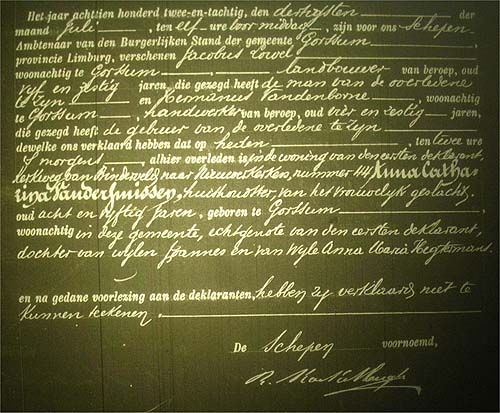 Het jaar achttien honderd twee-en-tachtig, den dertigsten der
maand Juli, ten elf ure voor middag, zijn voor ons Schepen
Ambtenaar van den Burgerlijken Stand der gemeente Gorssum,
provincie Limburg, verschenen Jacobus
woonachtig te Gorssum, landbouwer van beroep, oud
vyf en zestig jaren, die gezegd heeft de man van de overledene
te zyn en Hermanus Vandenborne, woonachtig
te Gorssum, handwerker van beroep, oud vier en zestig jaren,
die gezegd heeft de gebuer van de overledene te zyn
dewelke ons verklaard hebben dat op heden, ten twee ure
's morgens, alhier overleden is in de woning van den eersten deklarant,
kerkweg van naar, nummer 44 Anna Catha-
rina Vanderhuissen, huishoudster van het vrouwelyk geslacht,
oud acht en vyftig jaren, geboren te Gorssum
woonachtig in deze gemeente, echtgenote van den eersten deklarant,
dochter van wylen Joannes en van Wyle Anna Maria Hegtermans.
en na gedane voorlezing aan de deklaranten, hebben zy verklaard niet te
kunnen tekenen.
De Schepen voornoemd,